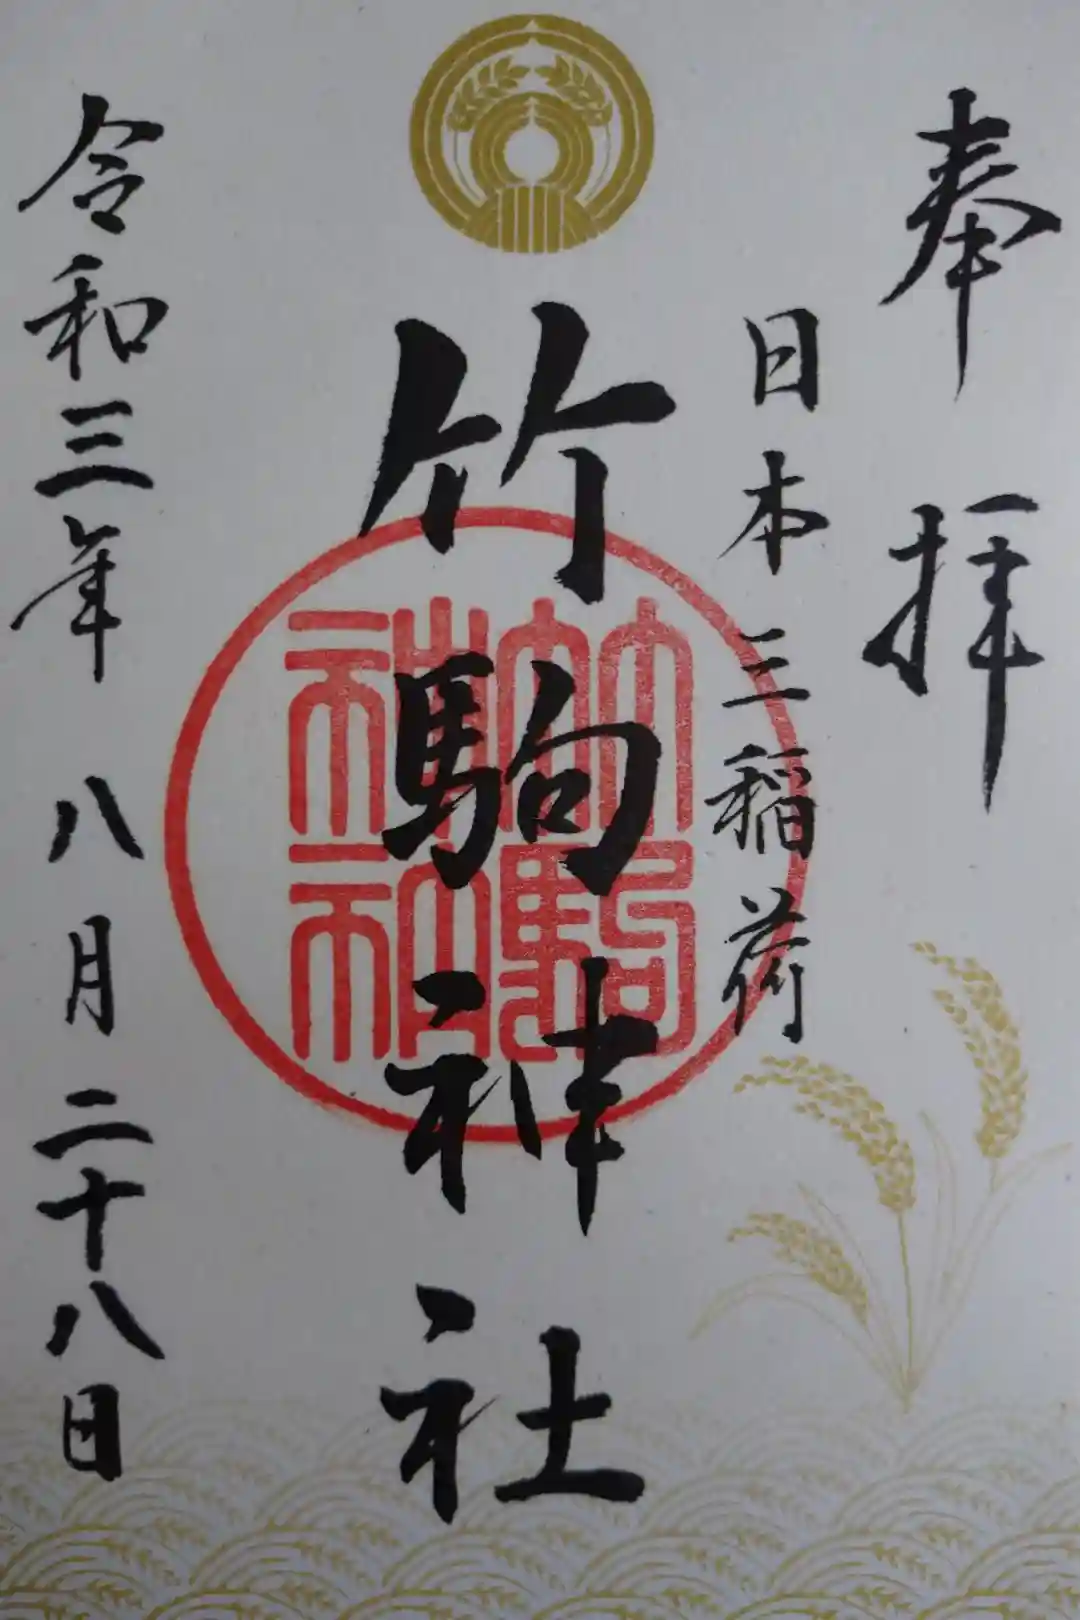 奉拝
日本三稲荷
竹駒神社
竹駒神社
令和三年 八月二十八日